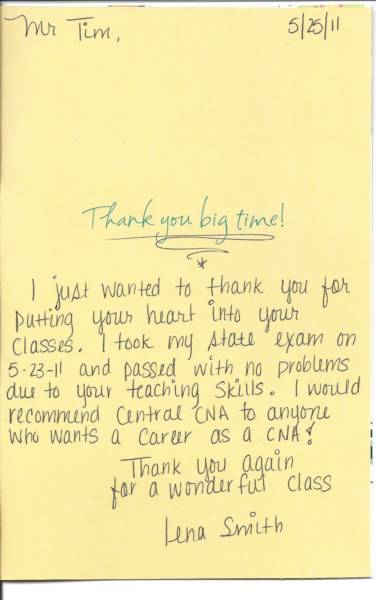 Mr Tim,
5/25/11
Thank you big time!
I just wanted to thank you for
putting your heart into your
classes. I took my state exam on
5-23-11 and passed with no problems
due to your teaching skills. I would
recommend Central CNA to anyone
who wants a career as a CNA!
Thank you again
for a wonderful class
Lena Smith